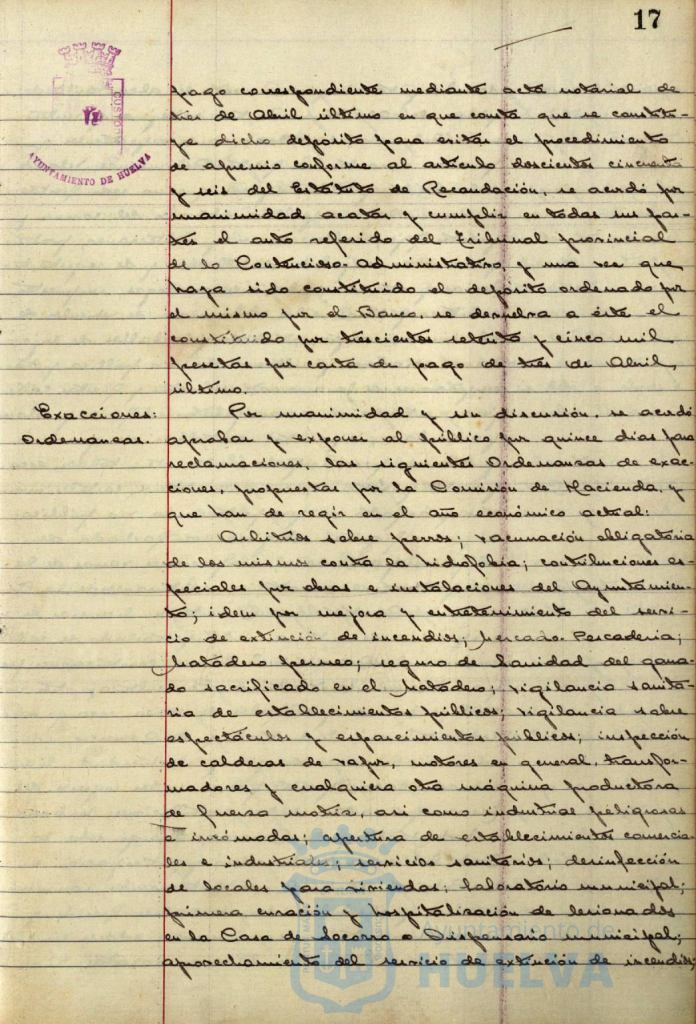 17
CUSTODIA
AYUNTAMIENTO DE HUELVA
pago correspondiente mediante acta notarial de
tres de Abril último en que consta que se constitu-
ye dicho depósito para evitar el procedimiento
de apremio conforme al artículo doscientos cincuenta
y seis del Estatuto de Recaudación, se acordó por
unanimidad acatar y cumplir en todas sus par-
tes el auto referido del Tribunal provincial
de lo Contencioso-administrativo, y una vez que
haya sido constituido el depósito ordenado por
el mismo por el Banco, se devuelva a éste el
constituido por trescientos setenta y cinco mil
pesetas por carta de pago de tres de Abril,
último.
Exacciones:
Ordenanzas.
Por unanimidad y sin discusión, se acordó
aprobar y exponer al público por quince días para
reclamaciones, las siguientes Ordenanzas de exac-
ciones, propuestas por la Comisión de Hacienda, y
que han de regir en el año económico actual:
Arbitrios sobre perros; vacunación obligatoria
de los mismos contra la hidrofobia; contribuciones es-
peciales por obras e instalaciones del Ayuntamien-
to; idem por mejora y entretenimiento del servi-
cio de extinción de incendios; Mercado-Pescadería;
Matadero; seguro de Sanidad del gana-
do sacrificado en el Matadero; vigilancia sanita-
ria de establecimientos públicos; vigilancia sobre
espectáculos y esparcimientos públicos; inspección
de calderas de vapor, motores en general, transfor-
madores y cualquiera otra máquina productora
de fuerza motriz, asi como industrias peligrosas
e incómodas; apertura de establecimientos comercia-
les e industriales; servicios sanitarios; desinfección
de locales para viviendas; Laboratorio municipal;
primera curación y hospitalización de lesionados
en la Casa de Socorro o Dispensario municipal;
aprovechamiento del servicio de extinción de incendios;
Ayuntamiento de
HUELVA